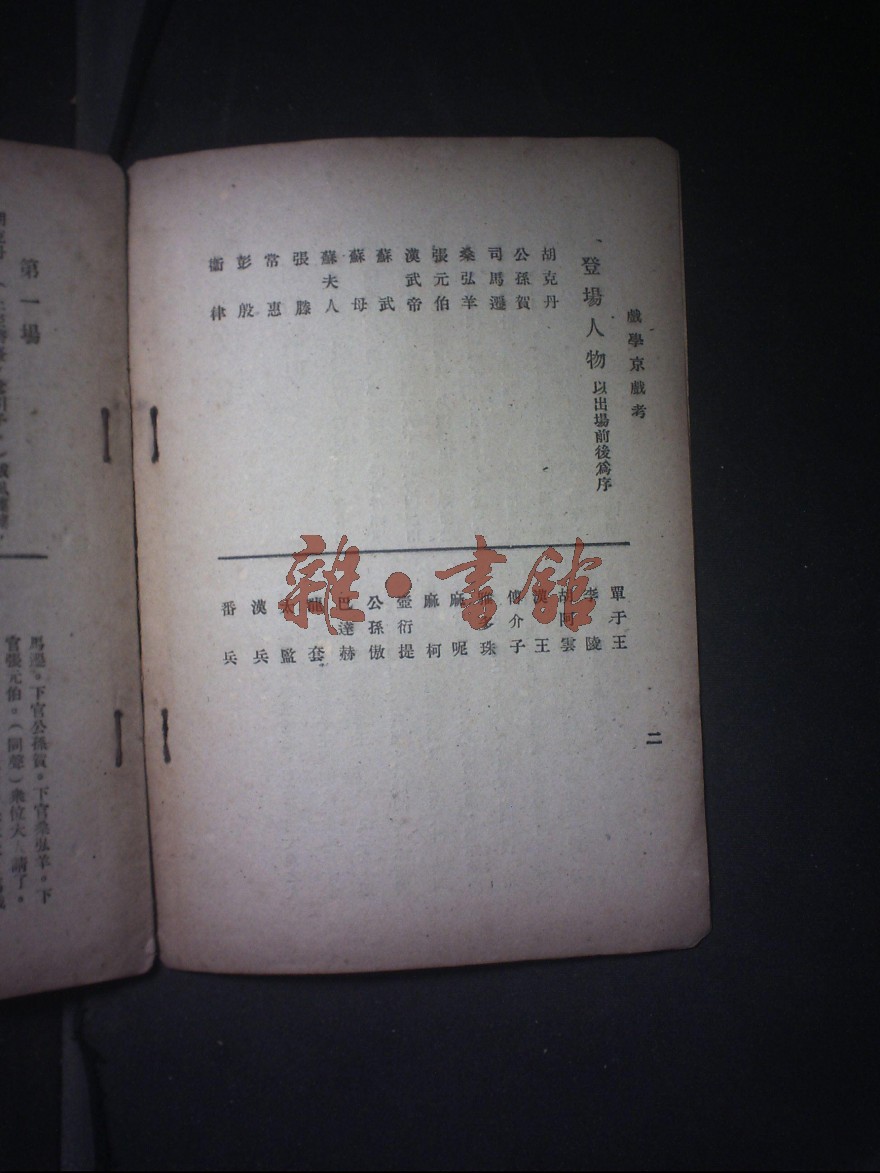 戲學京戲考
登場人物 以出場前後爲序
胡克丹
公孫賀
司馬遷
桑弘羊
張元伯
漢武帝
蘇武
蘇母
蘇夫人
張勝
常惠
彭殷
衞律
單于王
李陵
胡阿雲
漢王
傅介子
麻呢
麻柯
壺衍提
公孫傲
巴達赫
龍套
太監
漢兵
番兵
二
雜·書館
第一場
馬遷。下官公孫賀。下官桑弘羊。下
官張元伯。(同聲)衆位大人請了。